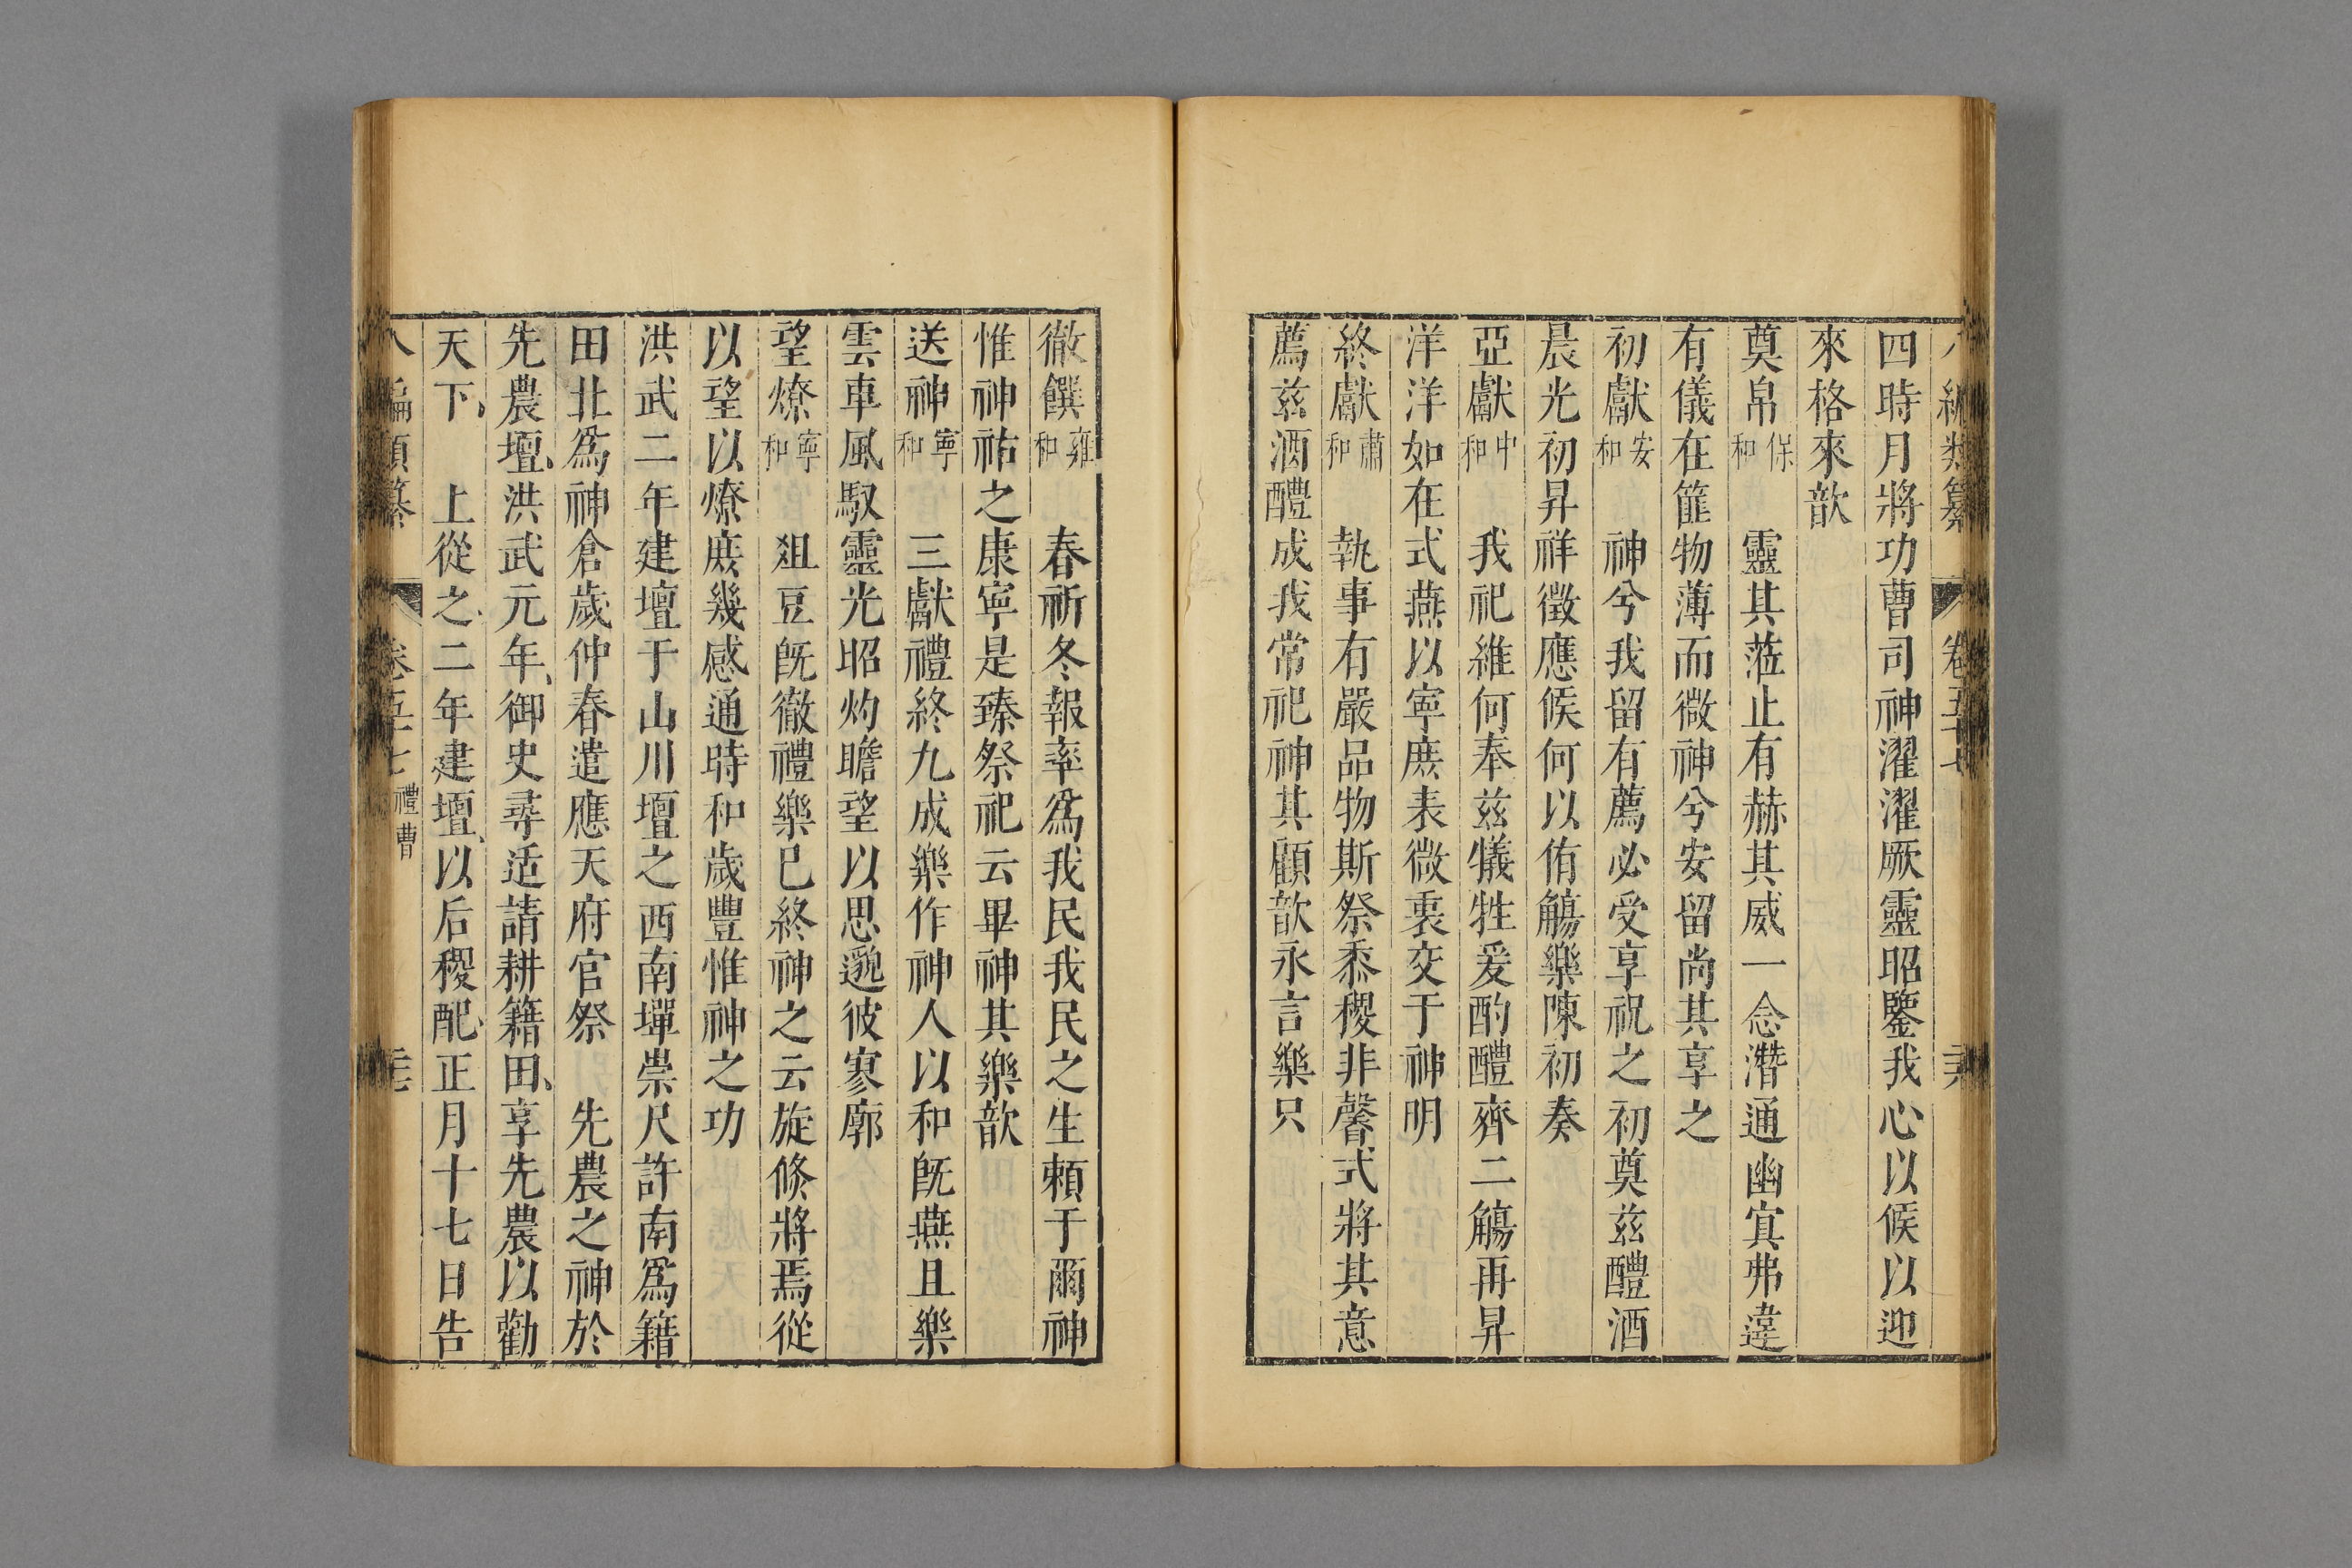 四時月將功曹司神濯濯厥靈昭鑒我心以候以迎
來格來歆
奠帛保和 靈其蒞止有赫其威一念潛通幽冥弗違
有儀在篚物薄而微神兮安留尚其享之
初獻安和 神兮我留有薦必受享祝之初奠茲醴酒
晨光初昇祥徵應候何以侑觴樂陳初奏
亞獻中和 我祀維何奉茲犧牲爰酌醴齊二觴再昇
洋洋如在式燕以寧庶表微衷交于神明
終獻肅和 執事有嚴品物斯祭黍稷非馨式將其意
薦茲酒醴成我常祀神其顧歆永言樂只
徹饌雍和 春祈冬報率爲我民我民之生賴于爾神
惟神祐之康寧是臻祭祀云畢神其樂歆
送神寧和 三獻禮終九成樂作神人以和旣燕且樂
雲車風馭靈光昭灼瞻望以思邈彼寥廓
望燎寧和 俎豆旣徹禮樂已終神之云旋倐將焉從
以望以燎庶幾感通時和歲豐惟神之功
洪武二年建壇于山川壇之西南墠崇尺許南爲籍
田北爲神倉歲仲春遣應天府官祭 先農之神於
先農壇、洪武元年、御史尋适請耕籍田、享先農以勸
天下、 上從之、二年建壇、以后稷配、正月十七日告
八編類纂 卷五十七 禮曹